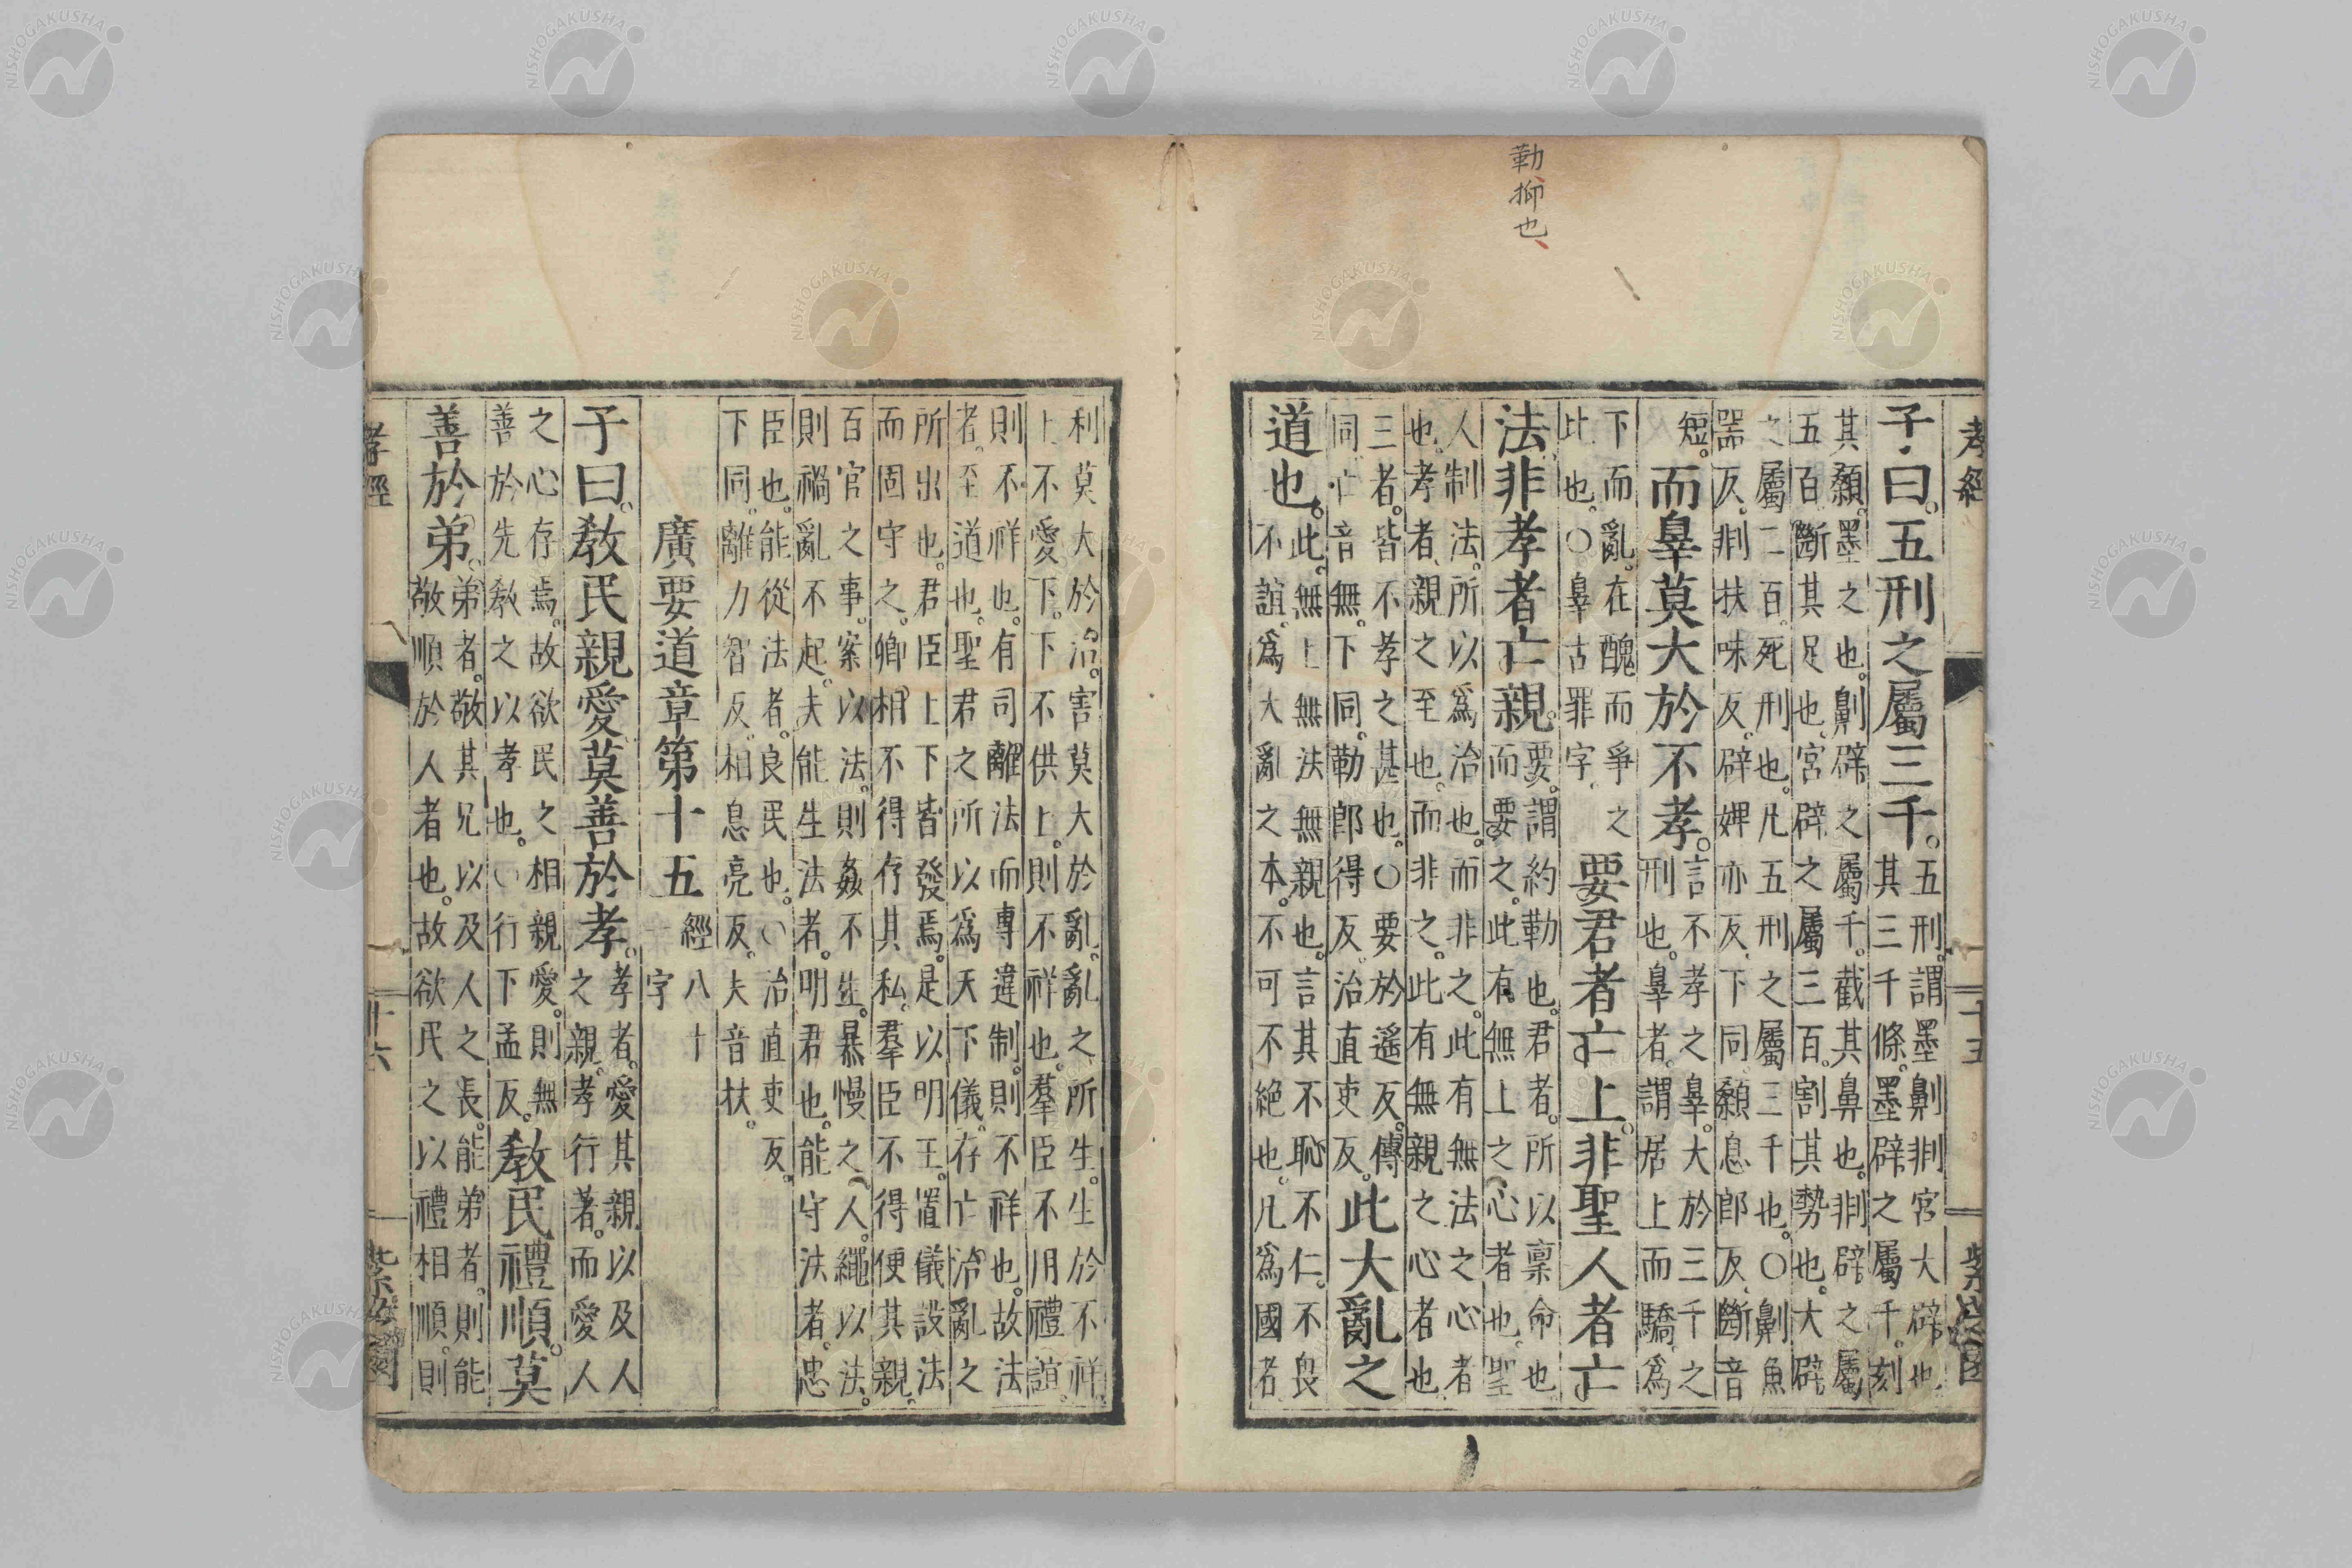 勒、抑也、
孝經
十五
子曰。五刑之屬三千。五刑。謂墨劓剕宮大辟也
其三千條。墨辟之屬千。刻
其顙。墨之也。劓辟之屬千。截其鼻也。剕辟之屬
五百。斷其足也。宮辟之屬三百。割其勢也。大辟
之屬二百。死刑也。凡五刑之屬三千也。○劓魚
器反。剕扶味反。辟婢亦反。下同。顙息郎反。斷音
短。而辠莫大於不孝。言不孝之辠。大於三千之
刑也。辠者。謂居上而驕。爲
下而亂。在醜而爭之
此也。○辠古罪字。
要君者亡上。非聖人者亡
法。非孝者亡親。要。謂約勒也。君者。所以稟命也
而要之。此有無上之心者也。聖
人制法。所以爲治也。而非之。此有無法之心者
也。孝者。親之至也。而非之。此有無親之心者也
三者。皆不孝之甚也。○要於遙反。傳
同。亡音無。下同。勒郎得反。治直吏反。
此大亂之
道也。此。無上無法無親也。言其不恥不仁。不畏
不誼。爲大亂之本。不可不絶也。凡爲國者
利莫大於治。害莫大於亂。亂之所生。生於不祥
上不愛下。下不供上。則不祥也。羣臣不用禮誼
則不祥也。有司離法而專違制。則不祥也。故法
者。至道也。聖君之所以爲天下儀。存亡治亂之
所出也。君臣上下皆發焉。是以明王置儀設法
而固守之。卿相不得存其私。羣臣不得便其親。
百官之事。案以法。則姦不生。暴慢之人。繩以法。
則禍亂不起。夫能生法者。明君也。能守法者。忠
臣也。能從法者。良民也。○治直吏反。
下同。離力智反。相息亮反。夫音扶。
廣要道章第十五 經八十
一字
子曰。敎民親愛。莫善於孝。孝者。愛其親以及人
之親。孝行著。而愛人
之心存焉。故欲民之相親愛。則無
善於先敎之以孝也。○行下孟反。
敎民禮順。莫
善於弟。弟者。敬其兄以及人之長。能弟者。則能
敬順於人者也。故欲民之以禮相順。則
孝經
十六